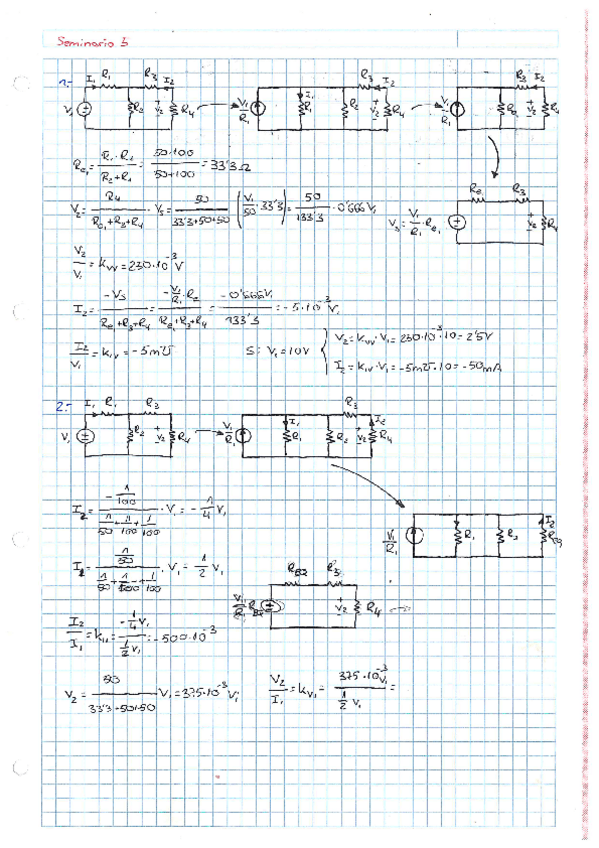 Seminario 5
1.- I₁ R₁ R₃ I₂ R₂ V₂ R₄ V₁/R₁ I₁ R₁ R₂ R₃ I₂ V₂ R₄ V₁/R₁ Re R₃ I₂ V₂
Re₁ = R₁·R₂ / R₂+R₁ = 50·100 / 50+100 = 33'3 Ω
Re R₃ Vs = V₁/R₁ · Re₁ V₂ R₄
V₂ = R₄ / Re₁+R₃+R₄ · Vs = 50 / 33'3+50+50 (V₁/50 · 33'3) = 50 / 133'3 · 0'666V₁
V₂/V₁ = kvv = 250·10⁻³ V
I₂ = -Vs / Re₁+R₃+R₄ = -V₁/R₁·Re / Re₁+R₃+R₄ = -0'666V₁ / 133'3 = -5·10⁻³ V₁
I₂/V₁ = kiv = -5m℧ S: V₁=10V { V₂=kvv·V₁=250·10⁻³·10=2'5V
I₂=kiv·V₁=-5m℧·10=-50mA
2.- I₁ R₁ R₃ V₁ R₂ V₂ R₄ V₁/R₁ I₁ R₁ R₂ R₃ V₂ I₂ R₄
I₂ = -1/100 / 1/50+1/100+1/100 · V₁ = -1/4 V₁
V₁/R₁ R₁ R₂ I₂
1/50 / 1/50+1/100+1/100 · V₁ = 1/2 V₁
R₃ V₂ R₄
I₂/I₁ = kii = -1/4V₁ / 1/2V₁ = -500·10⁻³
V₂ = 50 / 33'3+50+50 V₁ = 375·10⁻³ V₁ V₂/I₁ = kvi = 375·10⁻³V₁ / 1/2 V₁ =